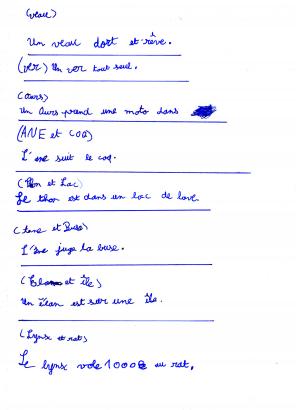 (veau)
Un veau dort et rêve.
(ver) Un ver tout seul.
(ours)
un ours prend une moto dans
(ANE et COQ)
L'âne suit le coq.
(Thon et Lac)
Le thon est dans un lac de lave.
(âne et Buse)
L'âne juge la buse.
(Élan et île)
Un élan est sur une île.
(Lynx et rat)
Le lynx vole 1000€ au rat.